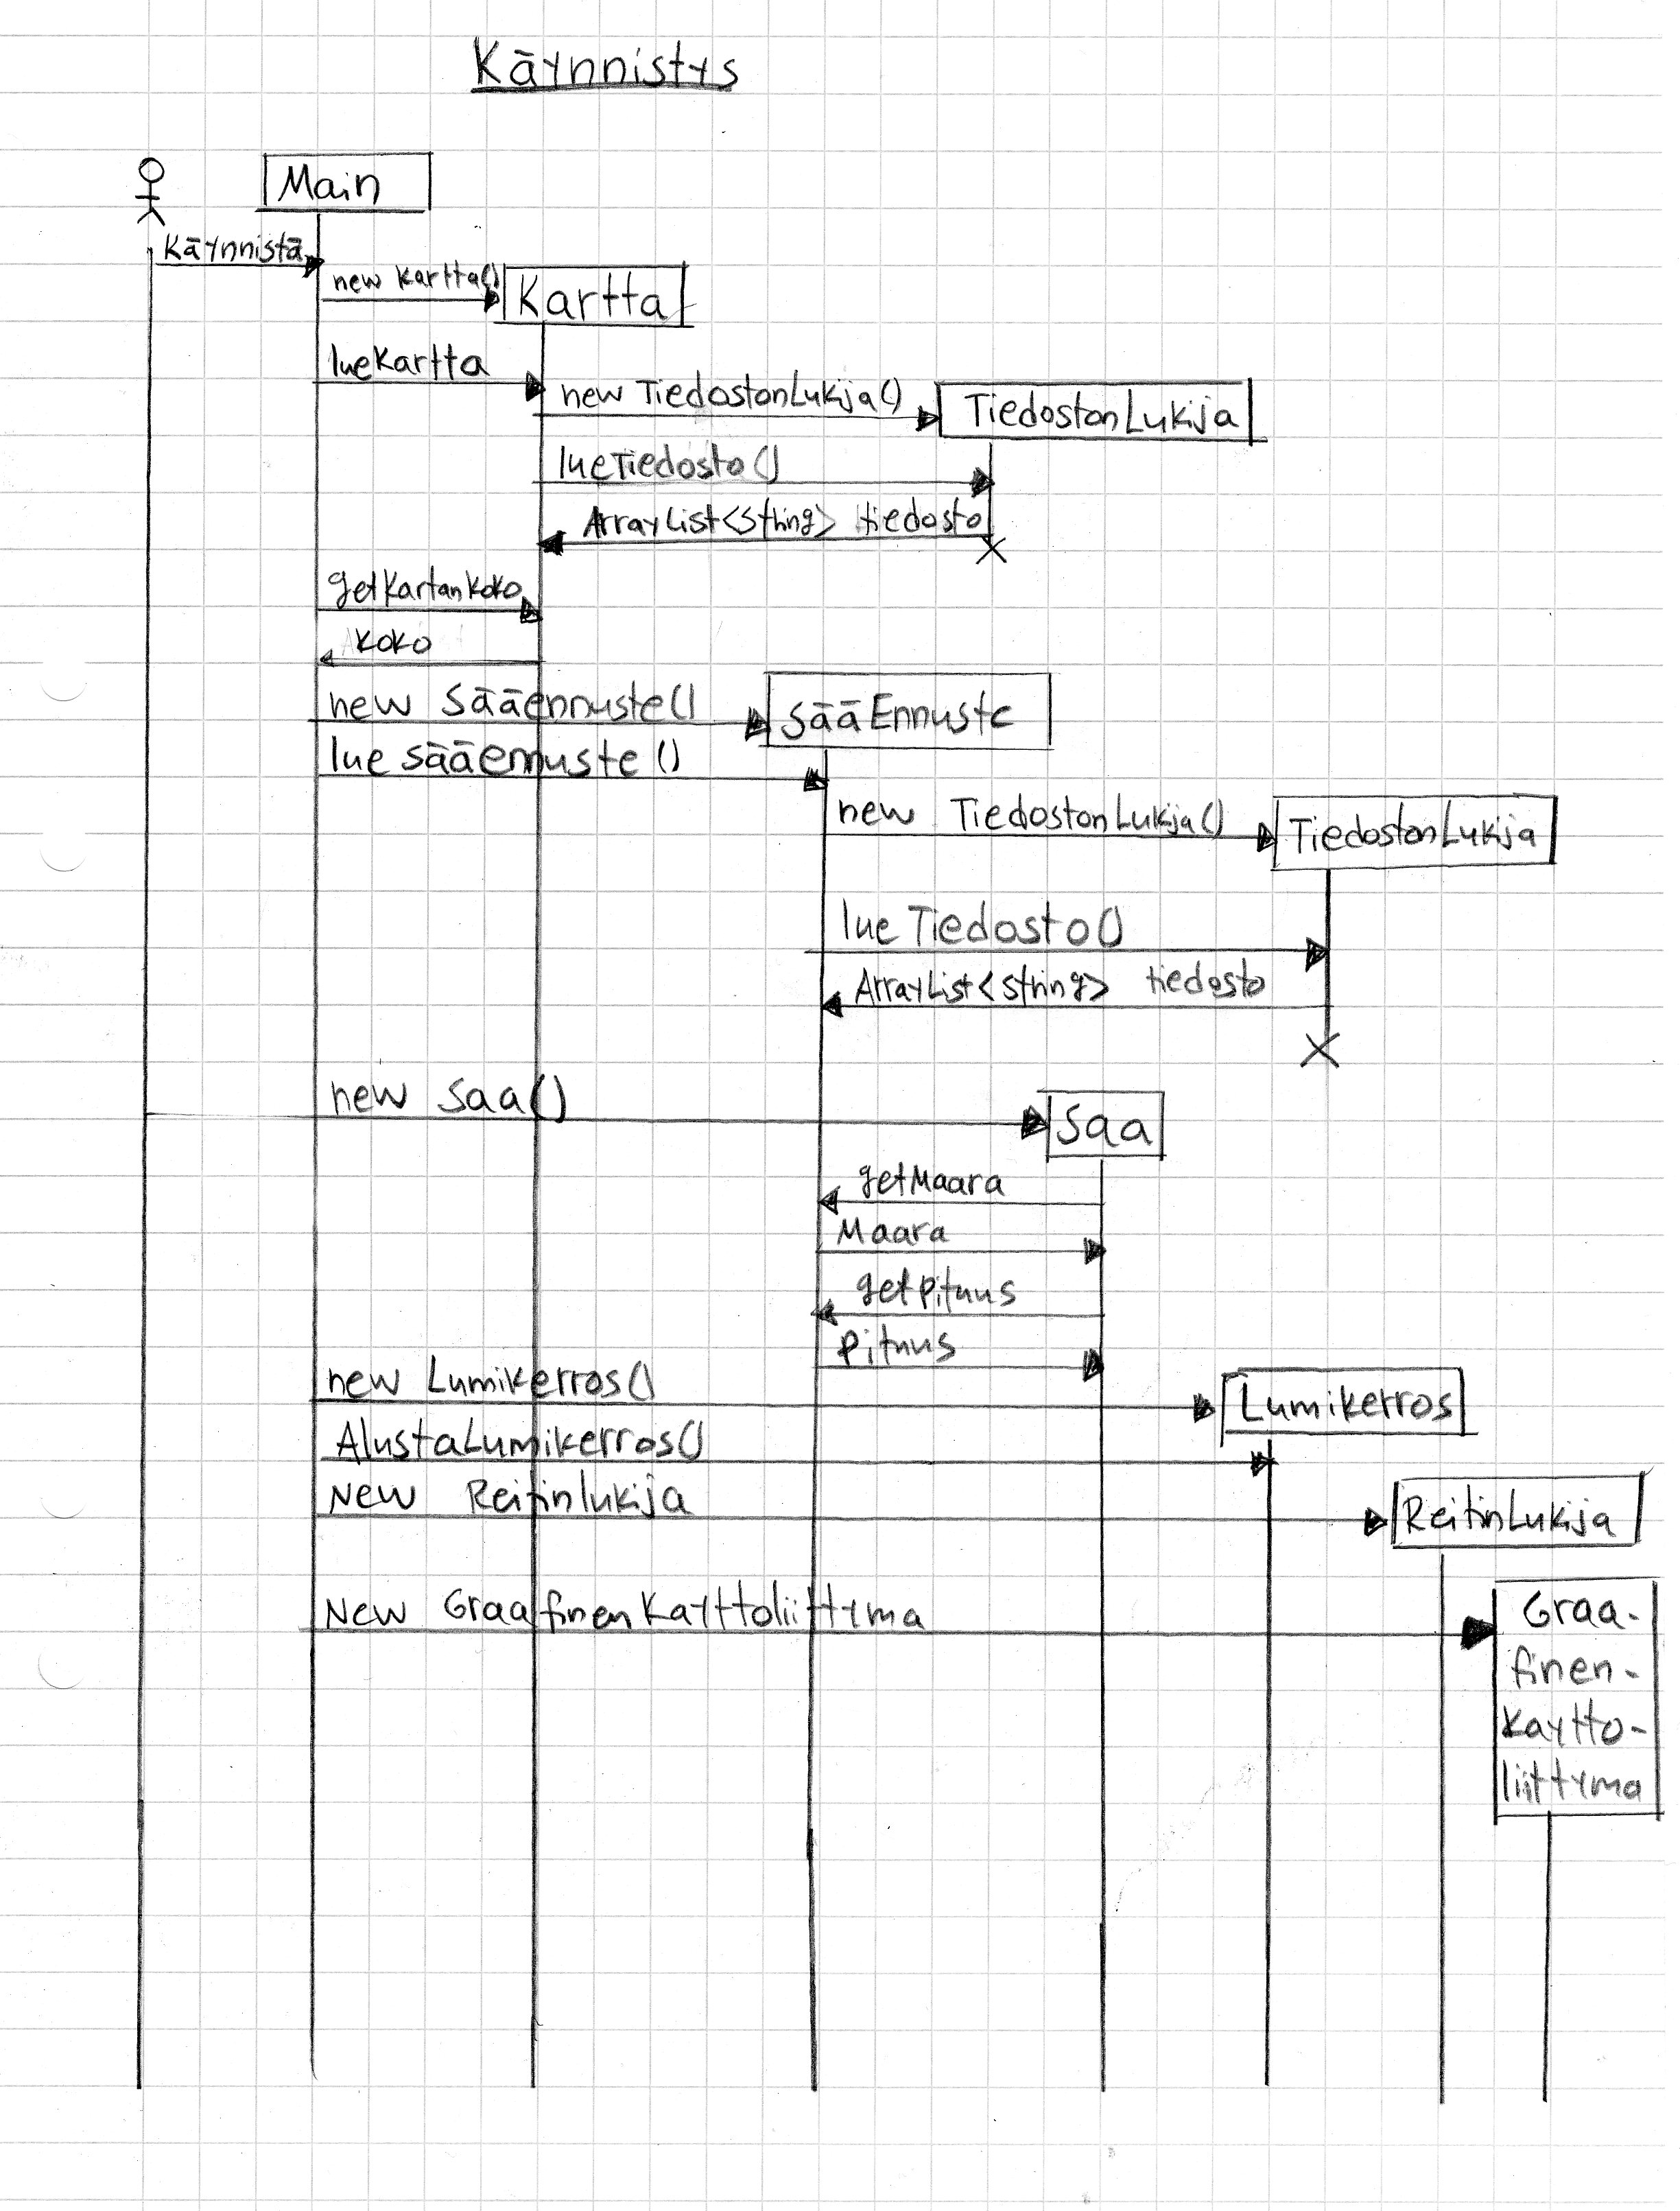 Käynnistys
Main
Käynnistä
new kartta()
Kartta
lueKartta
new TiedostonLukija()
TiedostonLukija
lueTiedosto()
ArrayList<String> tiedosto
getKartanKoko
koko
new Sääennuste()
SääEnnuste
lue sääennuste()
new TiedostonLukija()
TiedostonLukija
lueTiedosto()
ArrayList<String> tiedosto
new Saa()
Saa
getMaara
Maara
getPituus
Pituus
new Lumikerros()
Lumikerros
AlustaLumikerros()
New Reitinlukija
ReitinLukija
New GraafinenKayttoliittyma
Graa-
finen-
kaytto-
liittyma